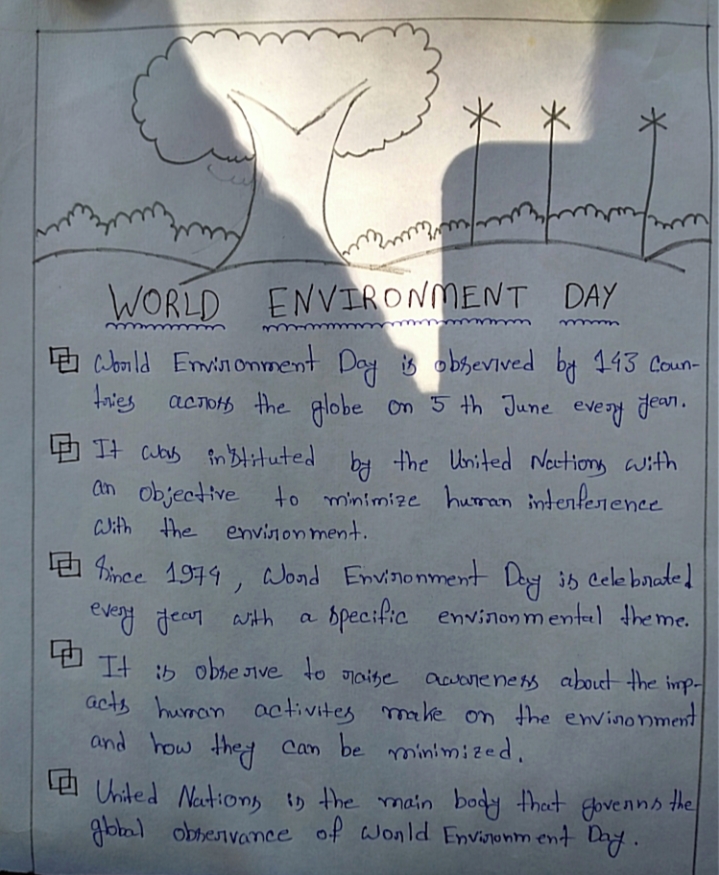 WORLD ENVIRONMENT DAY
World Environment Day is obserived by 143 coun-
tries across the globe on 5 th June every year.
It was instituted by the United Nations with
an objective to minimize human interference
with the environment.
Since 1974, Word Environment Day is celebrated
every year with a specific environmental theme.
It is observe to raise awareness about the imp-
acts human activites make on the environment
and how they can be minimized.
United Nations is the main body that governs the
global observance of World Environment Day.